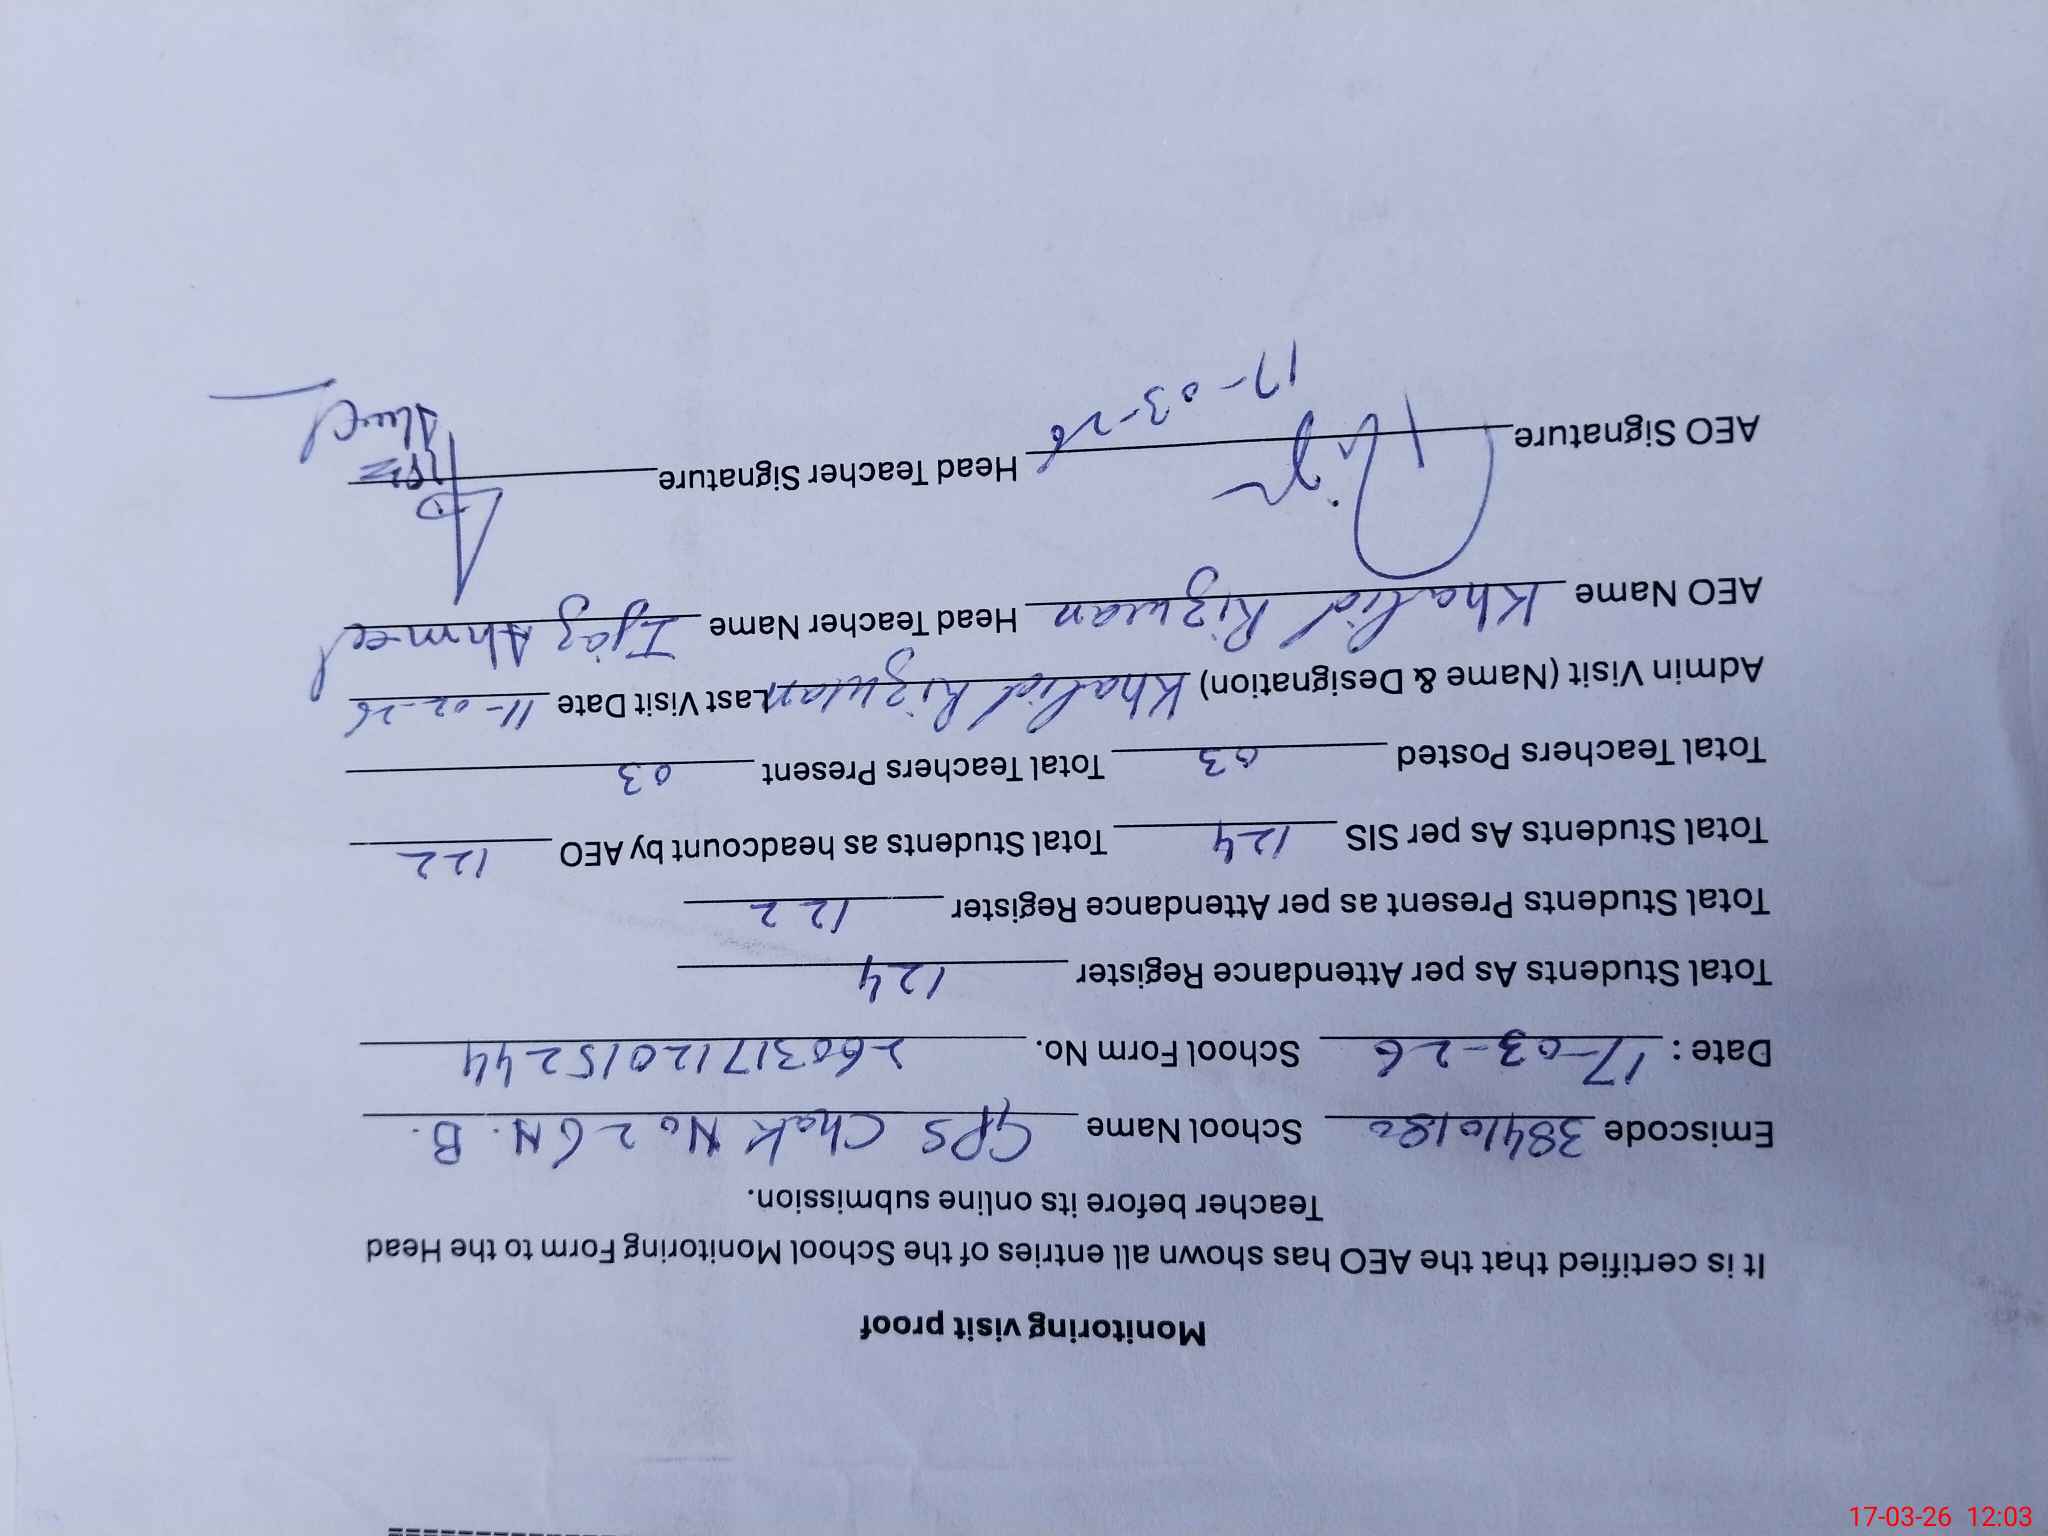 Monitoring visit proof
It is certified that the AEO has shown all entries of the School Monitoring Form to the Head
Teacher before its online submission.
Emiscode 38410180 School Name GPS Chak No 26 N.B.
Date : 17-03-26 School Form No. 26031712015244
Total Students As per Attendance Register 124
Total Students Present as per Attendance Register 122
Total Students As per SIS 124 Total Students as headcount by AEO 122
Total Teachers Posted 03 Total Teachers Present 03
Admin Visit (Name & Designation) Khalid Rizwan Last Visit Date 11-02-26
AEO Name Khalid Rizwan Head Teacher Name Ijaz Ahmed
AEO Signature Head Teacher Signature
17-03-26
17-03-26 12:03